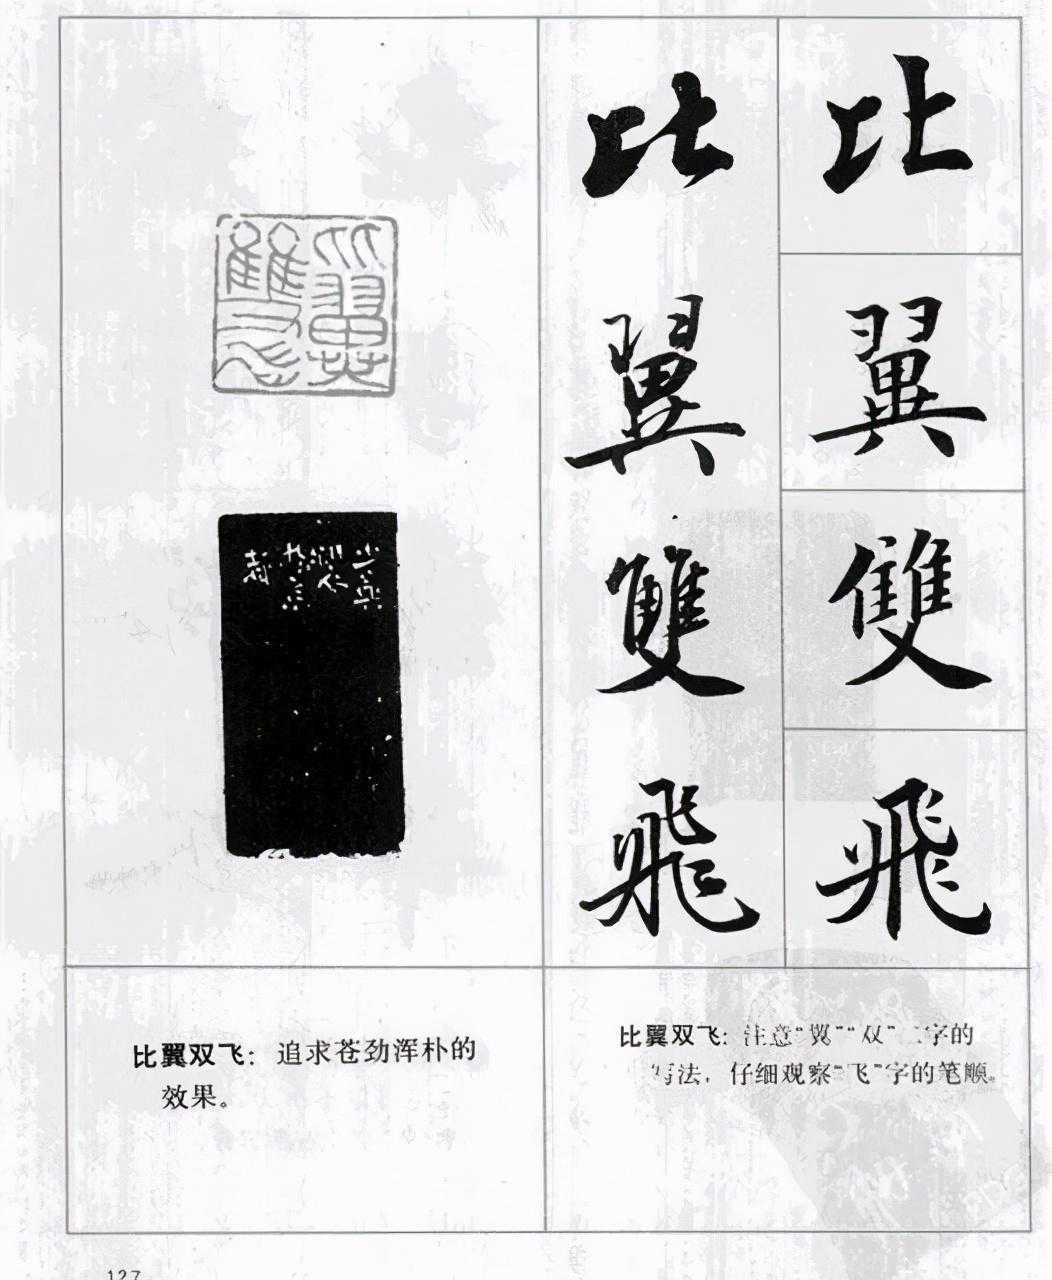 比
翼
雙
飛
比
翼
雙
飛
比翼双飞：追求苍劲浑朴的
效果。
比翼双飞：注意“翼”“双”二字的
写法，仔细观察“飞”字的笔顺。
127